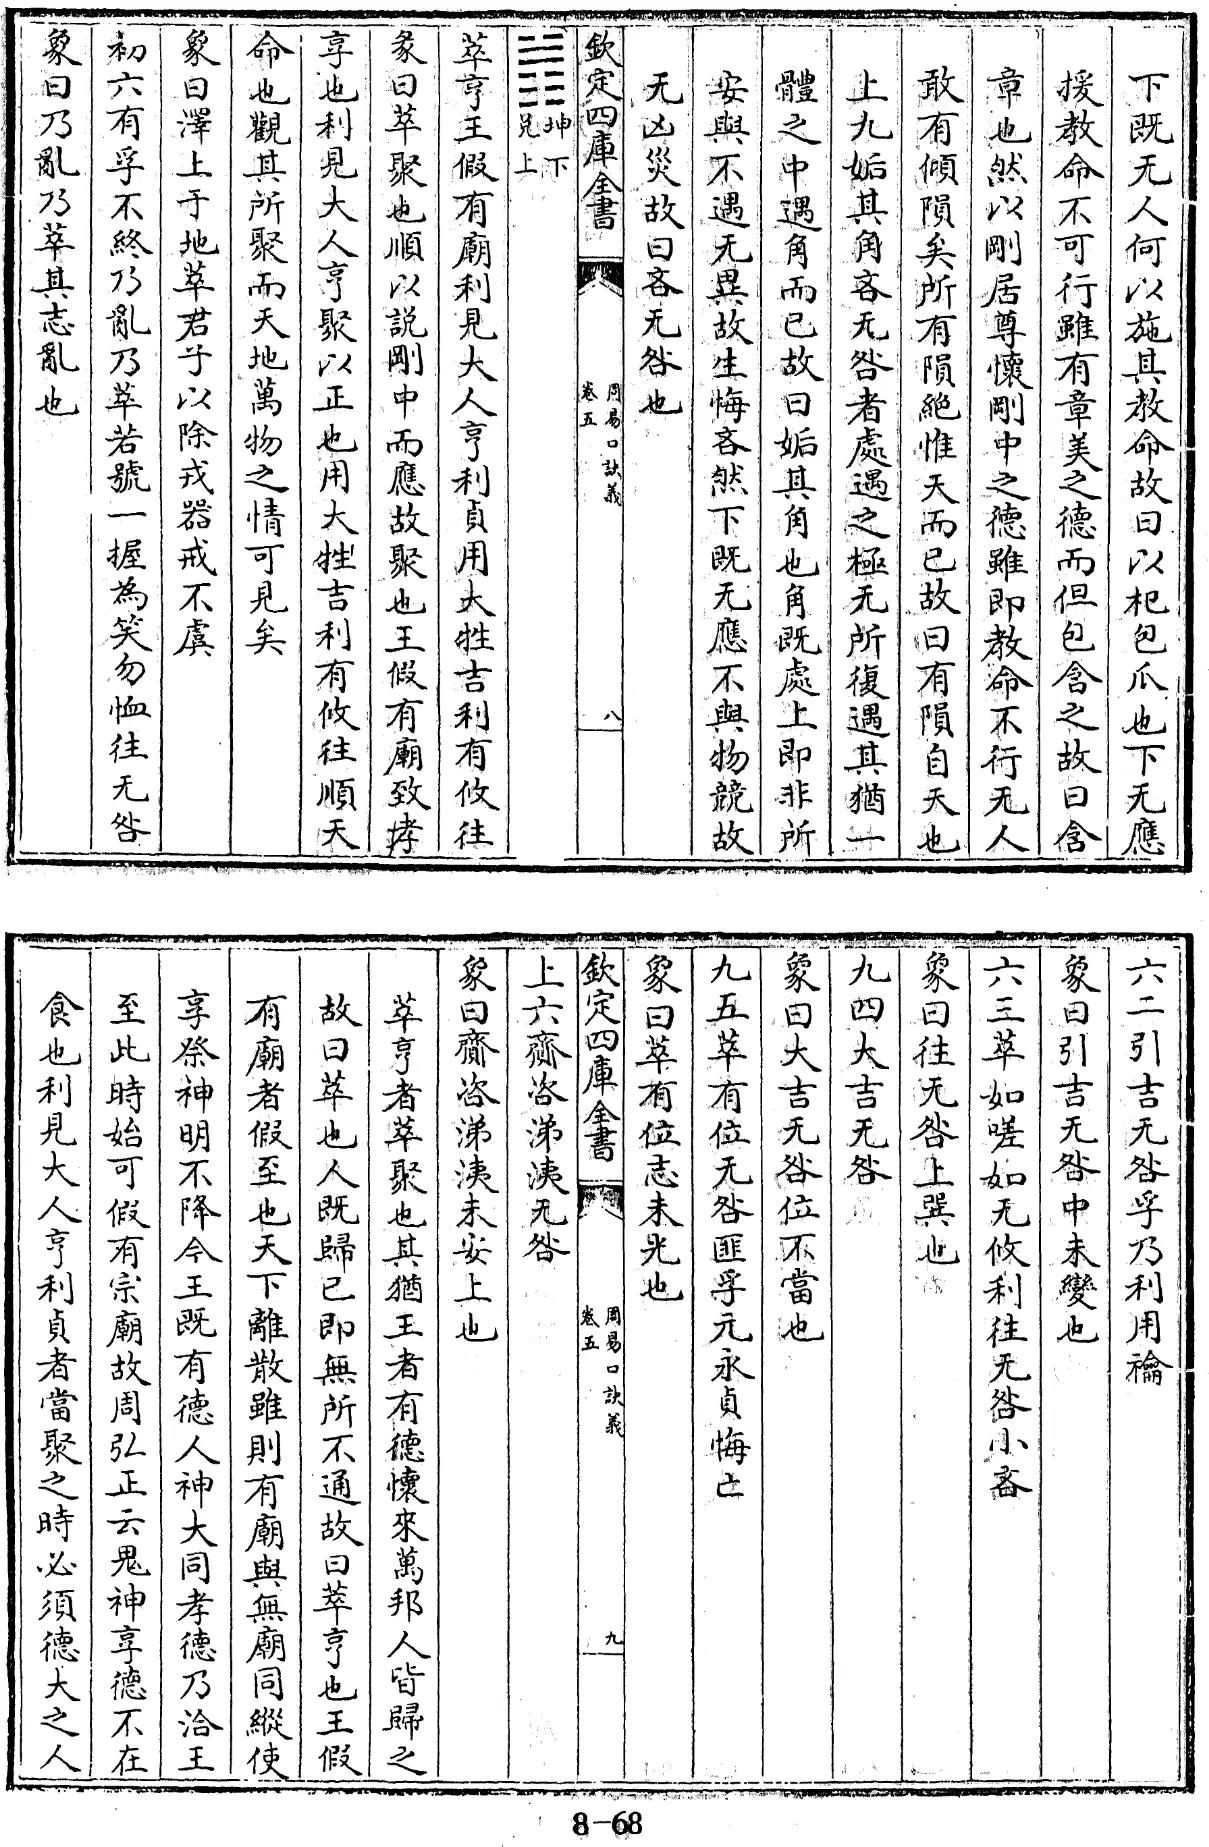 下既无人何以施其教命故曰以杞包爪也下无應
援教命不可行雖有章美之德而但包含之故曰含
章也然以剛居尊懷剛中之德雖即教命不行无人
敢有傾隕矣所有隕絶惟天而已故曰有隕自天也
上九姤其角吝无咎者處遇之極无所復遇其猶一
體之中遇角而已故曰姤其角也角既處上即非所
安與不遇无異故生悔吝然下既无應不與物競故
无凶災故曰吝无咎也
欽定四庫全書
周易口訣義
卷五
八
坤下
兌上
萃亨王假有廟利見大人亨利貞用大牲吉利有攸往
彖曰萃聚也順以説剛中而應故聚也王假有廟致孝
享也利見大人亨聚以正也用大牲吉利有攸往順天
命也觀其所聚而天地萬物之情可見矣
象曰澤上于地萃君子以除戎器戒不虞
初六有孚不終乃亂乃萃若號一握為笑勿恤往无咎
象曰乃亂乃萃其志亂也
六二引吉无咎孚乃利用禴
象曰引吉无咎中未變也
六三萃如嗟如无攸利往无咎小吝
象曰往无咎上巽也
九四大吉无咎
象曰大吉无咎位不當也
九五萃有位无咎匪孚元永貞悔亡
象曰萃有位志未光也
欽定四庫全書
周易口訣義
卷五
九
上六齎咨涕洟无咎
象曰齎咨涕洟未安上也
萃亨者萃聚也其猶王者有德懷來萬邦人皆歸之
故曰萃也人既歸已即無所不通故曰萃亨也王假
有廟者假至也天下離散雖則有廟與無廟同縱使
享祭神明不降今王既有德人神大同孝德乃洽王
至此時始可假有宗廟故周弘正云鬼神享德不在
食也利見大人亨利貞者當聚之時必須德大之人
8-68